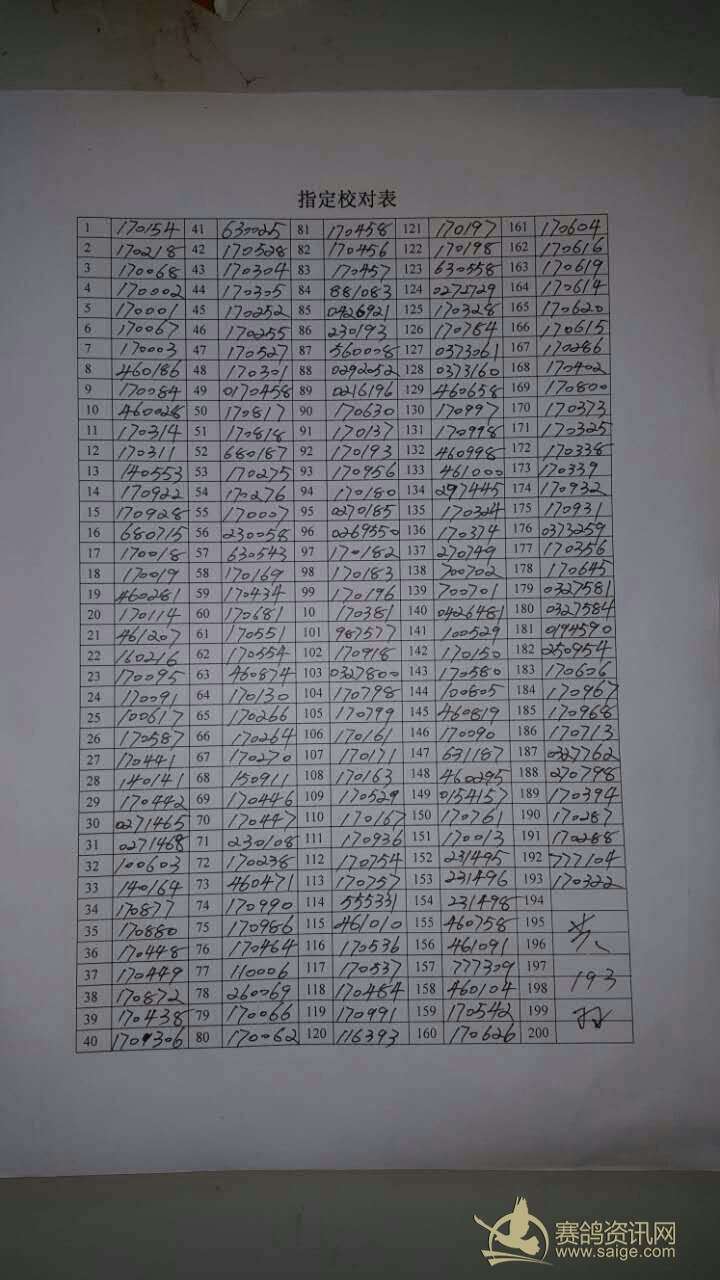 指定校对表
1 170154 41 630025 81 170458 121 170197 161 170604
2 170218 42 170528 82 170456 122 170198 162 170616
3 170068 43 170304 83 170457 123 630558 163 170619
4 170002 44 170305 84 881083 124 0272729 164 170614
5 170001 45 170252 85 0426921 125 170328 165 170620
6 170067 46 170255 86 230193 126 170784 166 170615
7 170003 47 170527 87 560008 127 0373061 167 170286
8 460186 48 170301 88 0292052 128 0373160 168 170402
9 170084 49 0170458 89 0216196 129 460658 169 170800
10 460028 50 170817 90 170630 130 170997 170 170373
11 170314 51 170818 91 170137 131 170998 171 170325
12 170311 52 680187 92 170193 132 460998 172 170338
13 140553 53 170275 93 170956 133 461000 173 170339
14 170922 54 170276 94 170180 134 297445 174 170932
15 170928 55 170007 95 0270185 135 170324 175 170931
16 680715 56 230058 96 0269550 136 170374 176 0373259
17 170018 57 630543 97 170182 137 270749 177 170356
18 170019 58 170169 98 170183 138 700702 178 170645
19 460281 59 170434 99 170196 139 700701 179 0327581
20 170114 60 170681 10 170381 140 0426481 180 0327584
21 461207 61 170551 101 987577 141 100529 181 0194590
22 160216 62 170554 102 170918 142 170150 182 250954
23 170095 63 460874 103 0327800 143 170580 183 170606
24 170091 64 170130 104 170798 144 100805 184 170967
25 100617 65 170266 105 170799 145 460819 185 170968
26 170587 66 170264 106 170161 146 170090 186 170713
27 170441 67 170270 107 170171 147 631187 187 0327762
28 140141 68 150911 108 170163 148 460295 188 270798
29 170442 69 170446 109 170529 149 0154157 189 170394
30 0271465 70 170447 110 170167 150 170761 190 170287
31 0271468 71 230108 111 170936 151 170013 191 170288
32 100603 72 170238 112 170754 152 231495 192 777104
33 140164 73 460471 113 170757 153 231496 193 170322
34 170877 74 170990 114 555331 154 231498 194
35 170880 75 170986 115 461010 155 460758 195
36 170448 76 170464 116 170536 156 461091 196
37 170449 77 110006 117 170537 157 777309 197
38 170872 78 260069 118 170484 158 460104 198 193
39 170438 79 170066 119 170991 159 170542 199
40 80 170062 120 116393 160 170626 200
赛鸽资讯网
www.saige.com